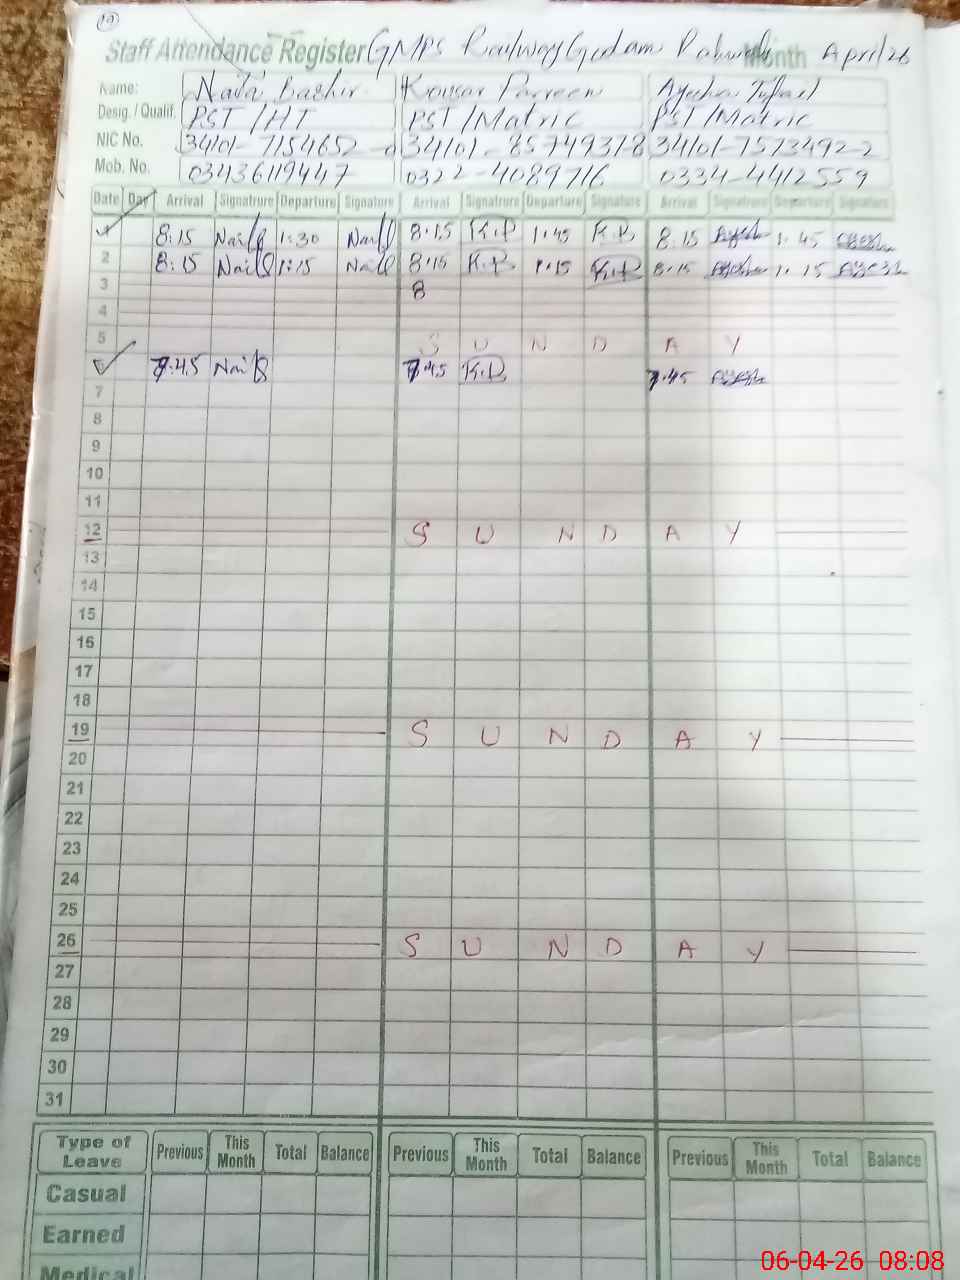 10
Staff Attendance Register GMPS Railway Godam Month April/26
Name: Naila Bashir Kousar Parveen Ayesha Tufail
Desig. / Qualif. PST/HT PST/Matric PST/Matric
NIC No. 34101-7154652- 34101-8574937-8 34101-7573492-2
Mob. No. 03436119447 0322-4089716 0334-4412559
Date Day Arrival Signatrure Departure Signature Arrival Signatrure Departure Signature Arrival Signatrure Departure Signature
1 8:15 Naila 1:30 Naila 8:15 K.P 1:45 K.P 8:15 Ayesha 1:45 Ayesha
2 8:15 Naila 1:15 Naila 8:15 K.P 1:15 K.P 8:15 Ayesha 1:15 Ayesha
3 8
4
5 S U N D A Y
6 7:45 Naila 7:45 K.P 7:45 Ayesha
7
8
9
10
11
12 S U N D A Y
13
14
15
16
17
18
19 S U N D A Y
20
21
22
23
24
25
26 S U N D A Y
27
28
29
30
31
Type of Leave Previous This Month Total Balance Previous This Month Total Balance Previous This Month Total Balance
Casual
Earned
Medical
06-04-26 08:08